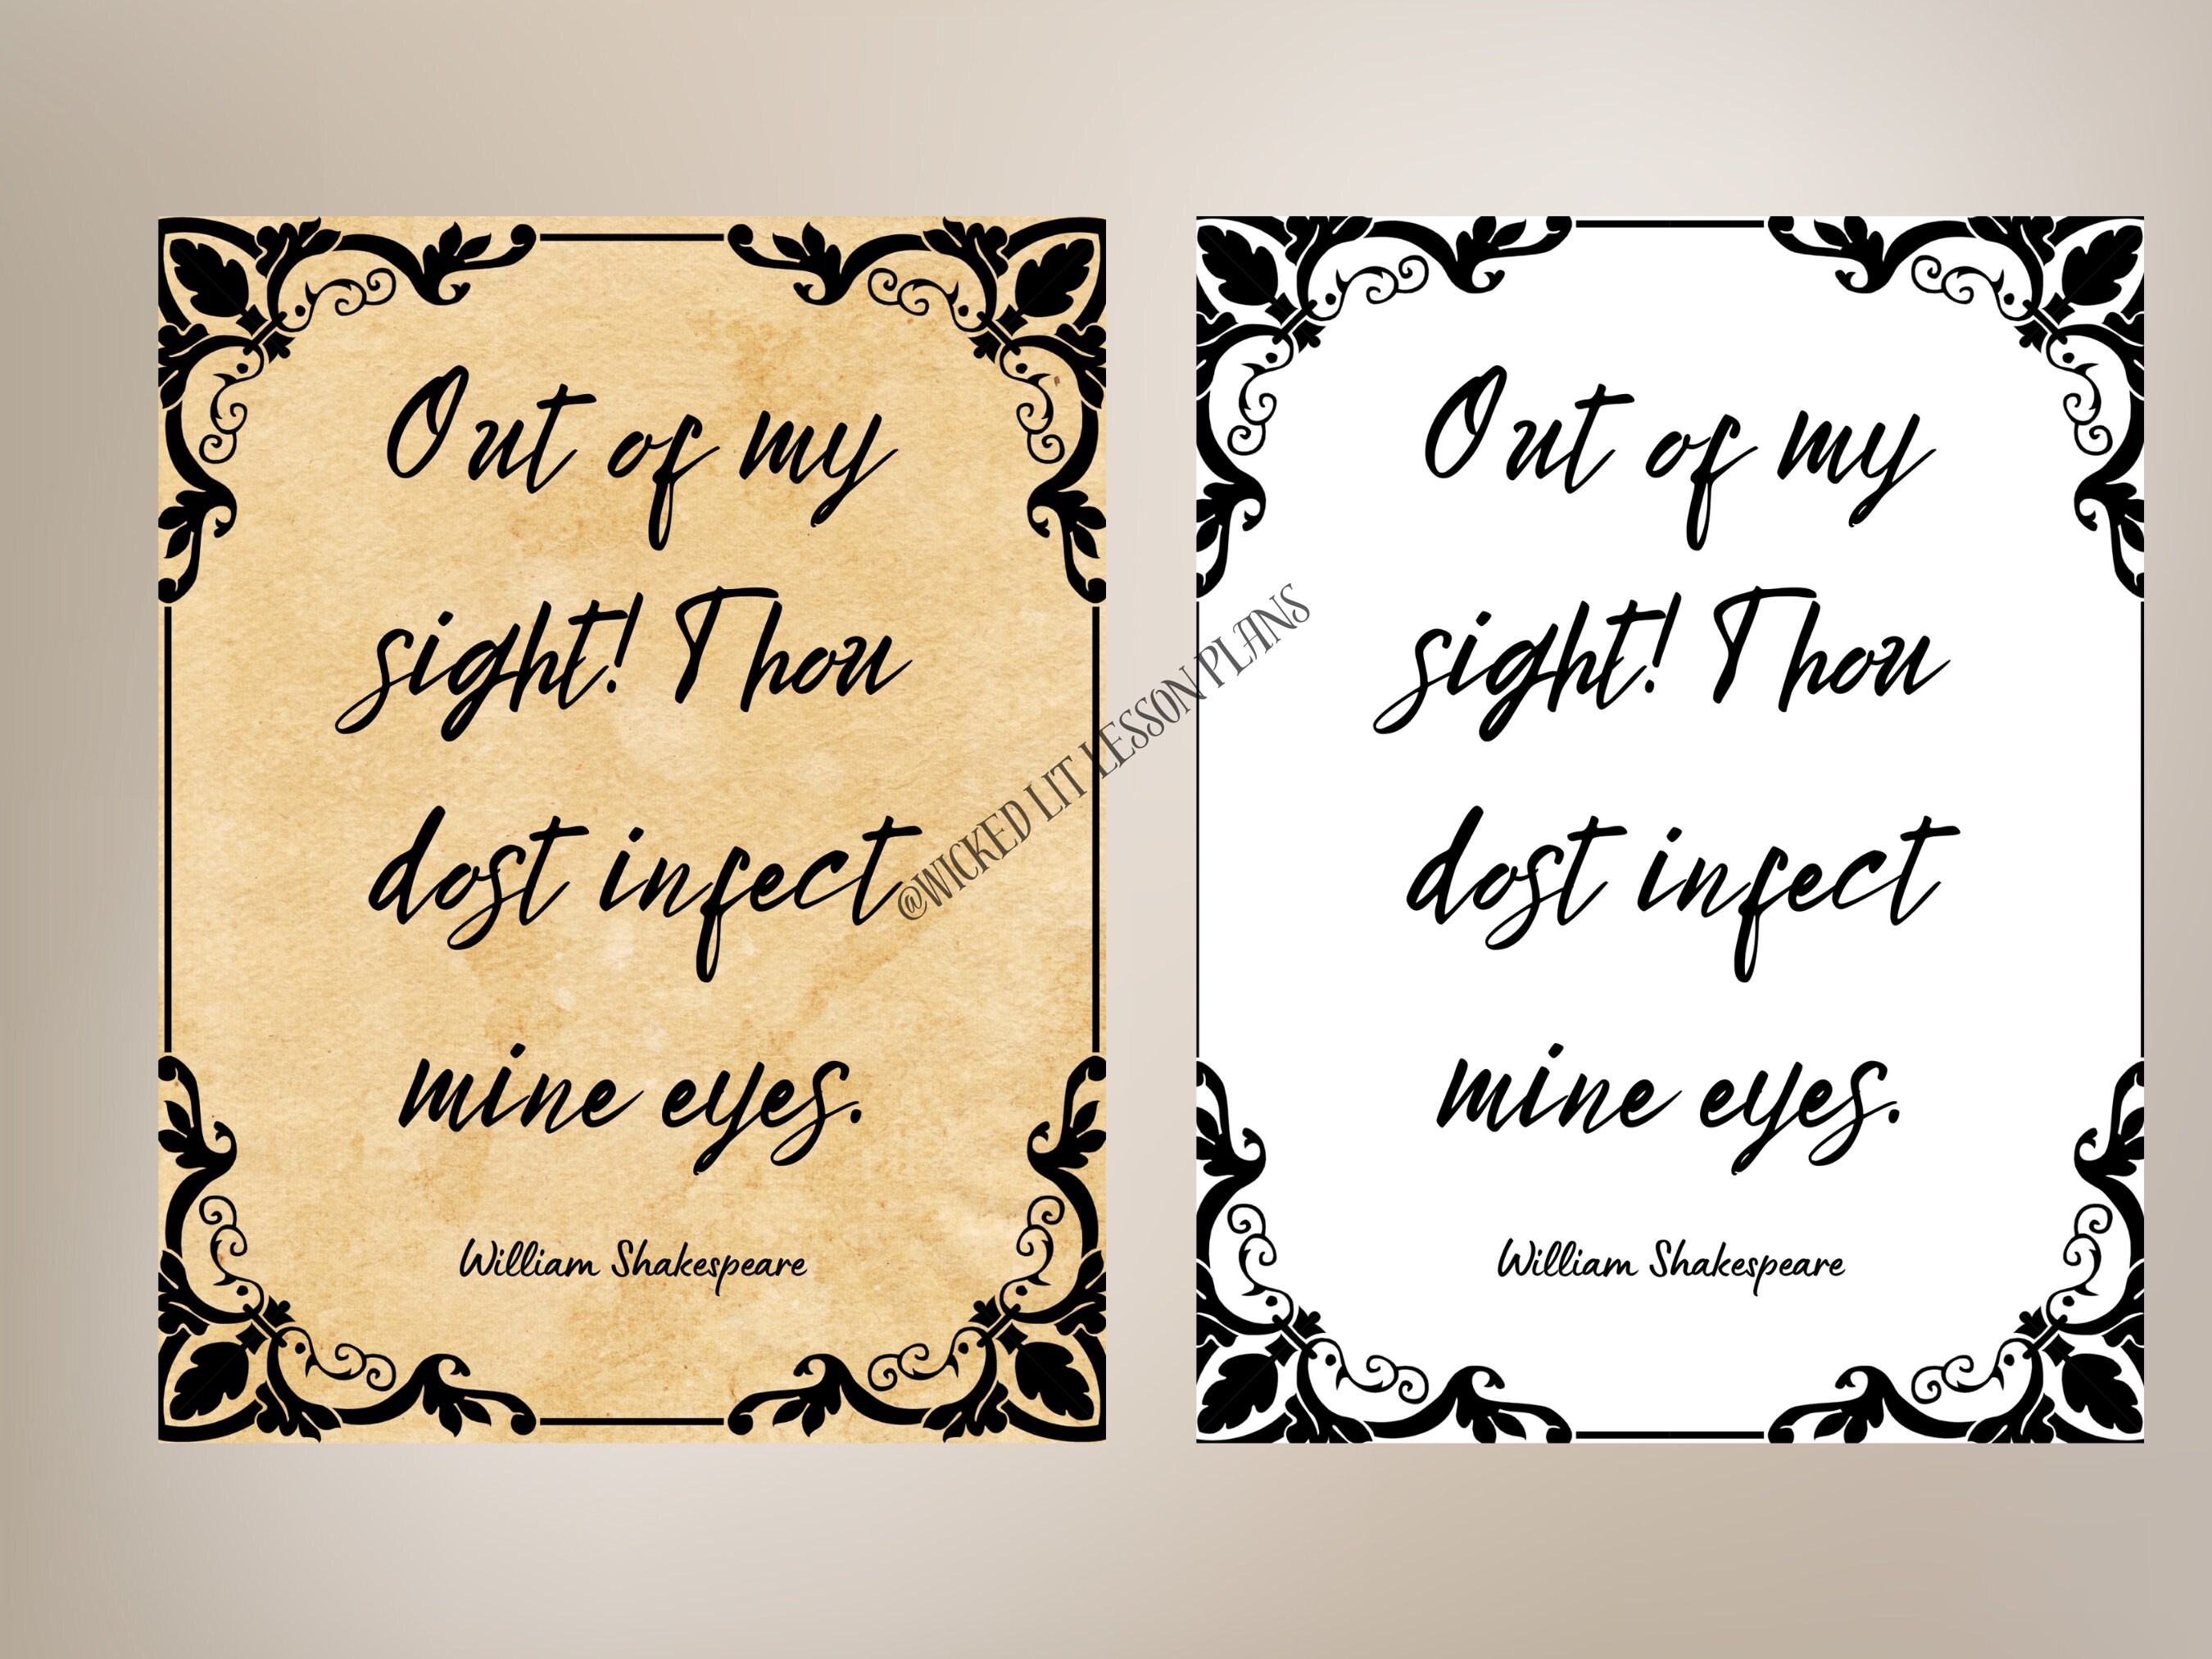 Out of my
sight! Thou
dost infect
mine eyes.
William Shakespeare
@WICKED LIT LESSON PLANS
Out of my
sight! Thou
dost infect
mine eyes.
William Shakespeare